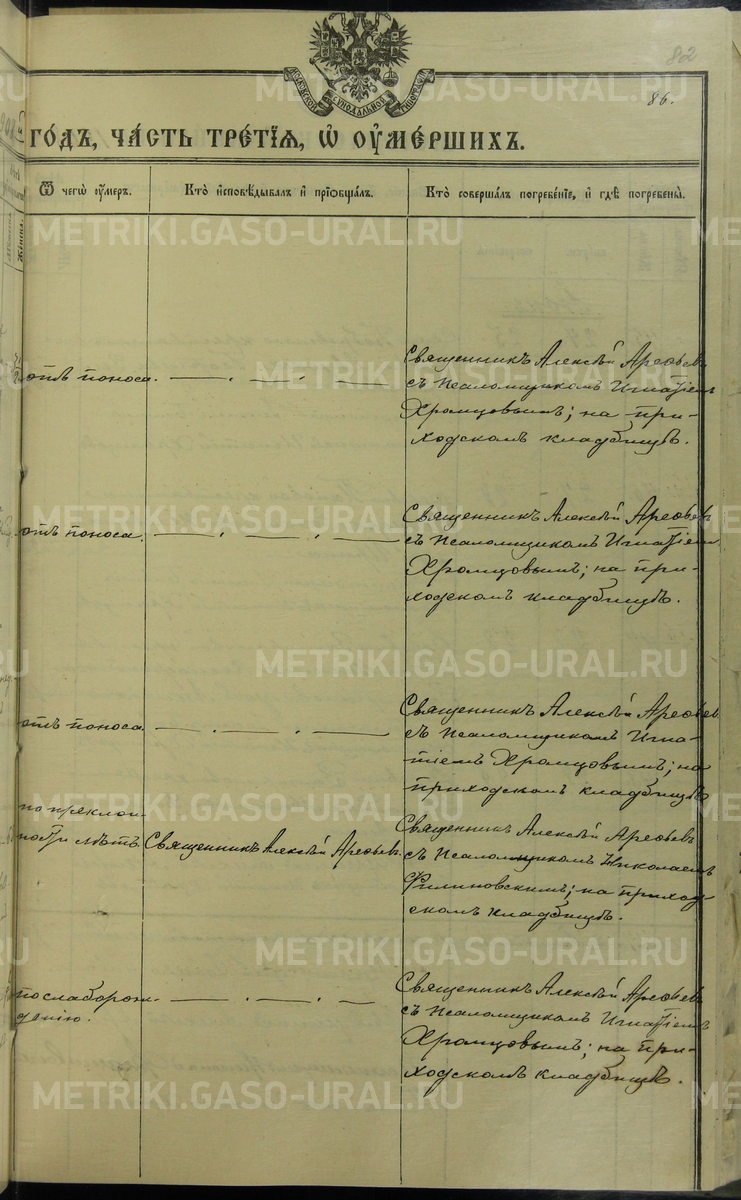 82
86.
МОСКОВСКОЙ СѴНОДАЛЬНОЙ ТИПОГРАФІИ
ГОДЪ, ЧАСТЬ ТРЕТІЯ, Ѡ ОУМЕРШИХЪ.
Ѿ чегѡ оумеръ.
Кто исповѣдывалъ и пріобщалъ.
Кто совершалъ погребеніе, и гдѣ погребены.
отъ поноса.
Священникъ Алексѣй Арефьевъ
съ псаломщикомъ Игнатіемъ
Храмцовымъ; на при-
ходскомъ кладбищѣ.
отъ поноса.
Священникъ Алексѣй Арефьевъ
съ псаломщикомъ Игнатіем
Храмцовымъ; на при-
ходском кладбищѣ.
отъ поноса.
Священникъ Алексѣй Арефьев
съ псаломщикомъ Игна-
тіемъ Храмцовымъ; на
приходскомъ кладбищѣ
по преклон-
ности лѣтъ.
Священникъ Алексѣй Арефьевъ.
Священникъ Алексѣй Арефьевъ
съ псаломщикомъ Николаемъ
Филиновскимъ; на приход-
скомъ кладбищѣ.
по слаборож-
денію.
Священникъ Алексѣй Арефьевъ
съ псаломщикомъ Игнатіемъ
Храмцовымъ; на при-
ходскомъ кладбищѣ.
METRIKI.GASO-URAL.RU